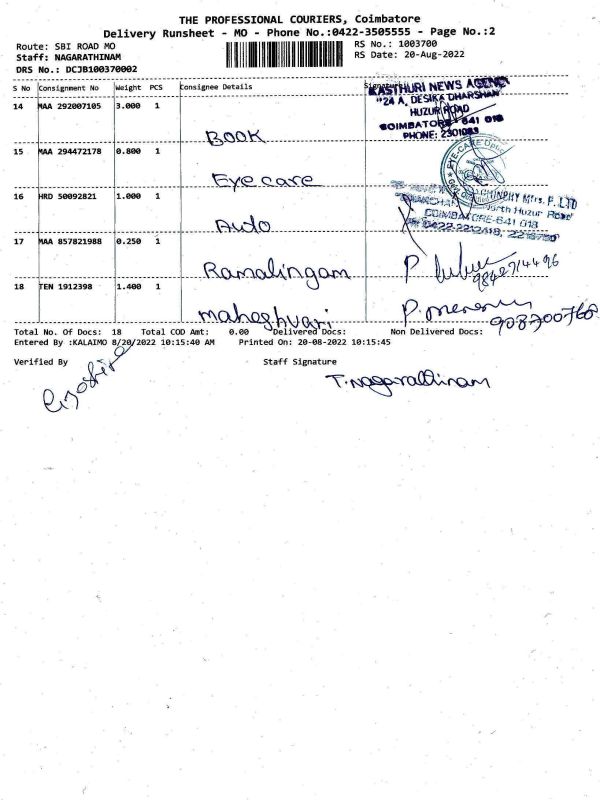 THE PROFESSIONAL COURIERS, Coimbatore
Delivery Runsheet - MO - Phone No.:0422-3505555 - Page No.:2
Route: SBI ROAD MO
RS No.: 1003700
Staff: NAGARATHINAM
RS Date: 20-Aug-2022
DRS No.: DCJB100370002
S No Consignment No Weight PCS Consignee Details
KASTHURI NEWS AGENCY
"24 A, DESIKA DHARSHAN
HUZUR ROAD
COIMBATORE - 641 018
PHONE: 2301083
14 MAA 292007105 3.000 1
BOOK
EYE-CARE Optic
15 MAA 294472178 0.800 1
Eye care
16 HRD 50092821 1.000 1
Mfrs. P. LTD
Huzur Road
COIMBATORE-641 018
Auto
17 MAA 857821988 0.250 1
Ramalingam
18 TEN 1912398 1.400 1
maheshvari
Total No. Of Docs: 18 Total COD Amt: 0.00 Delivered Docs: Non Delivered Docs:
Entered By :KALAIMO 8/20/2022 10:15:40 AM Printed On: 20-08-2022 10:15:45
Verified By Staff Signature
T.Nagarathinam